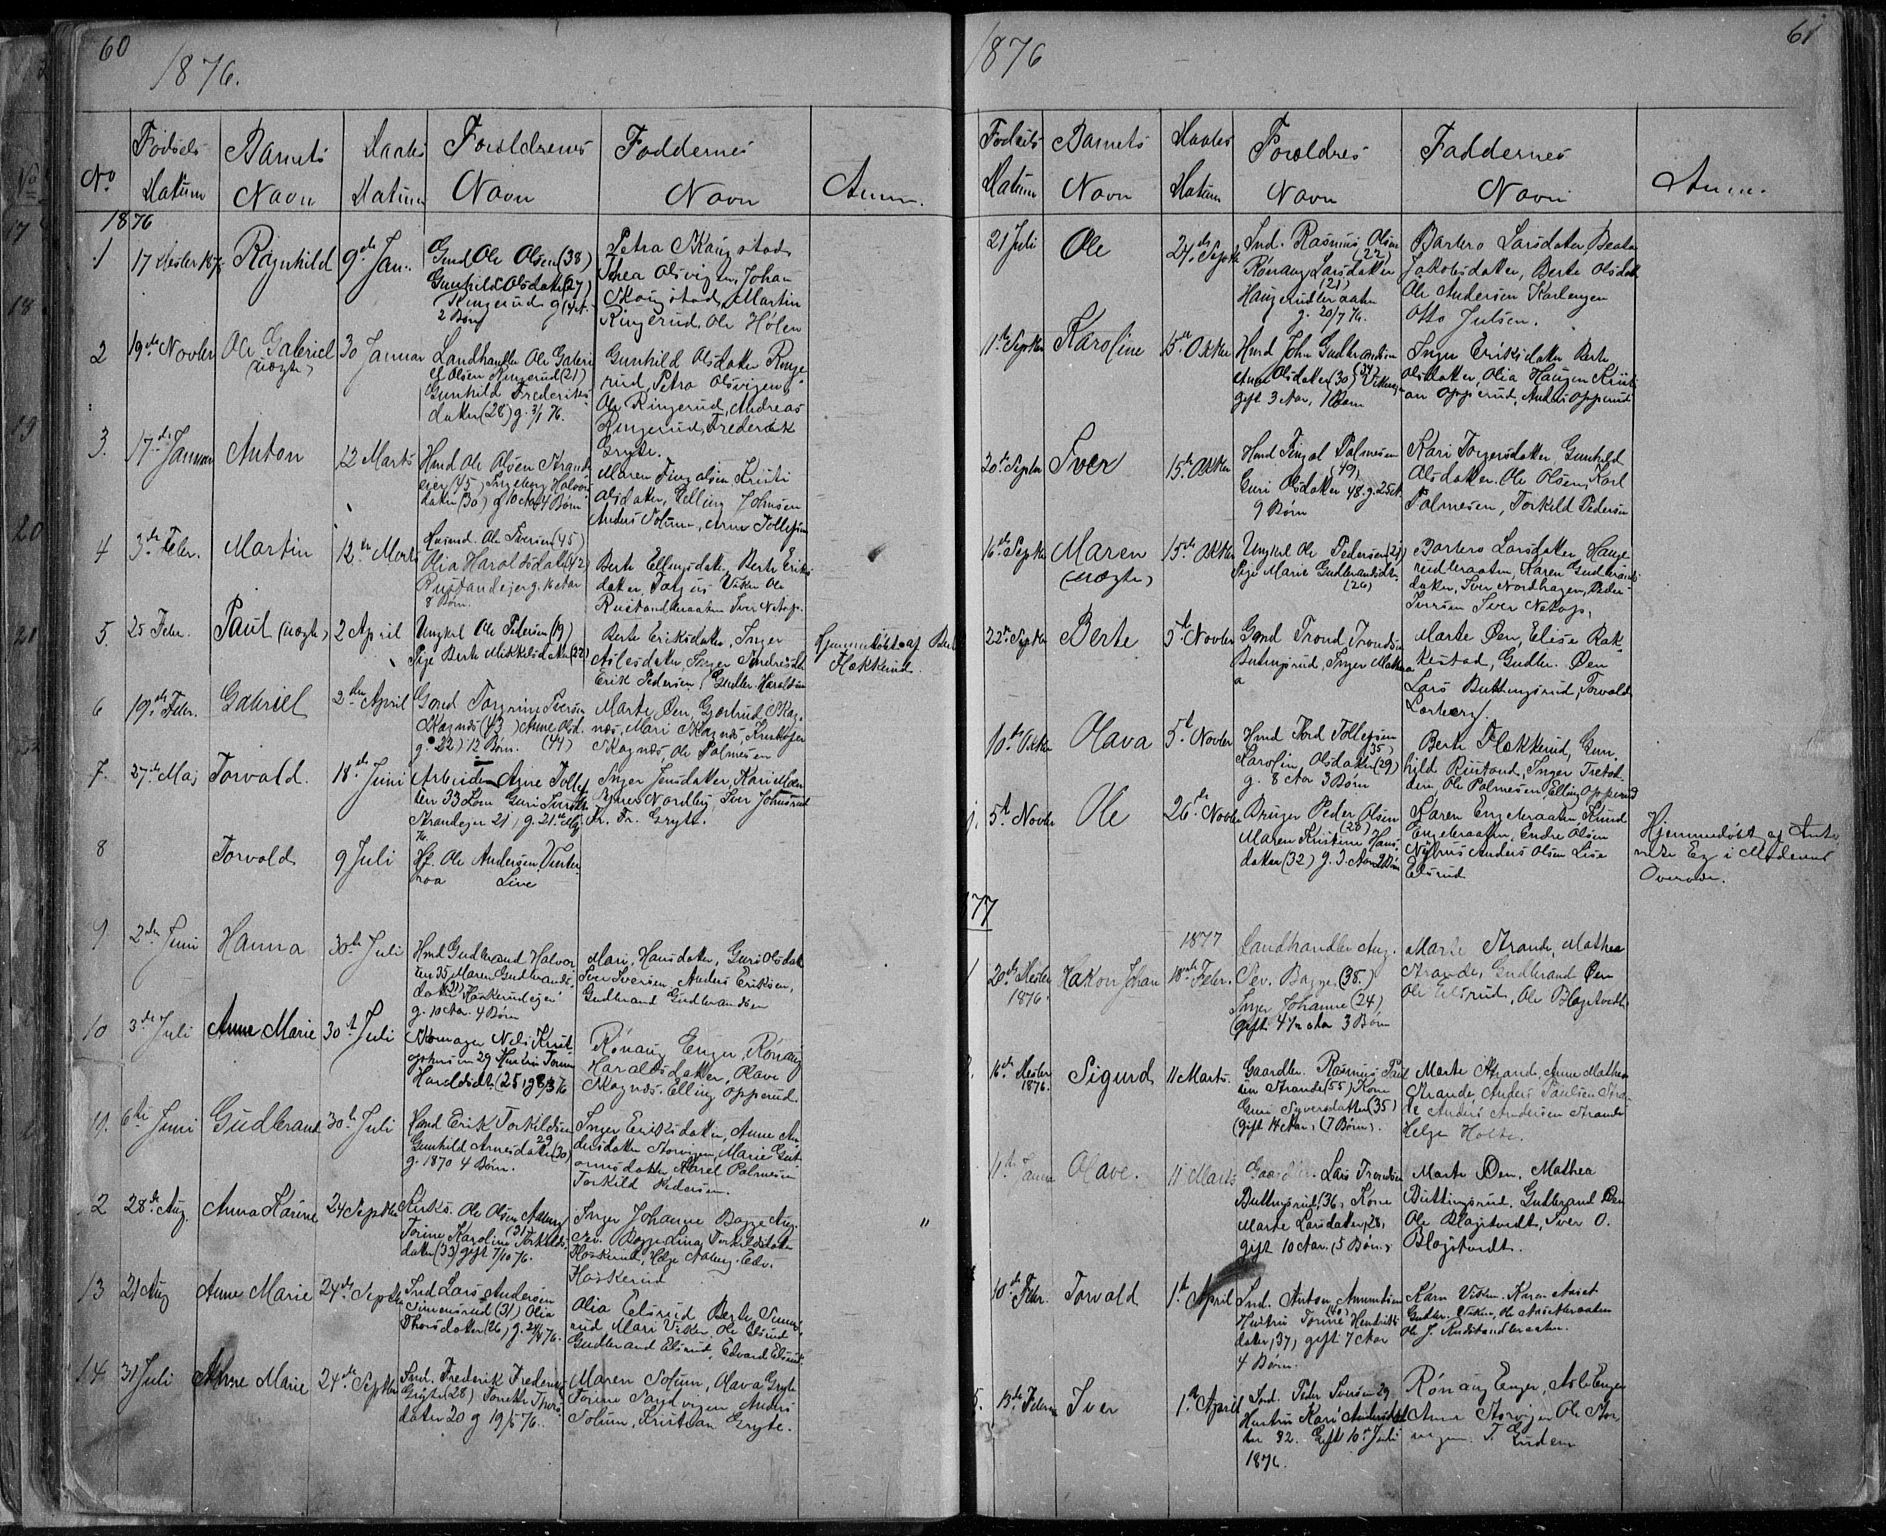 60
1876.
No
Fødsels
Datum
Barnets
Navn
Daabs
Datum
Forældrenes
Navn
Faddernes
Navn
Anm.
1876
1
Ragnhild
9de Jan.
Gmd Ole Olsen (38)
Gunhild Olsdatter (27)
Ringerud
2 Børn
Petra Skaugstad
Thea Olsvigen, Johan
Skaugstad, Martin
Ringerud, Ole Holen
2
19de Novbr
Ole Gabriel
(uægte)
30 Januar
Landhandler Ole Gabri
el Olsen Ringerud (21)
Gunhild Frederiks
datter (28) g. 3/1 76.
Gunhild Olsdatter Ringe
rud, Petra Olsvigen,
Ole Ringerud, Andreas
Ringerud, Frederik
Gryte.
3.
17de Januar
Anton
12 Marts
Hmd Ole Olsen Strand
eiet (45) Ingeborg Halvors
datter (30) g 10 Aar 4 Børn
Maren Fingalsen, Kristi
Olsdatter, Elling Johnsen
Anders Solum, Arne Tollefsen
4
3de Febr.
Martin
12te Marts
Husmd Ole Iversen (45)
Olia Haroldsdatter 42
Rustandeiet g. 16 Aar
8 Børn.
Berte Ellingsdatter, Berte Eriks
datter, Viker Ole
Rustandbraaten Iver
5.
25 Febr.
Paul (uægte)
2 April
Ungkrl Ole Pedersen (19)
Pige Berte Mikkelsdatter (22)
Berte Eriksdatter, Inger
Aslesdatter, Inger Andersdtr
Erik Pedersen, Gudbr. Haroldsen
Hjemmedøbt af Berte
Flækkerud.
6
19de Febr.
Gabriel
2den April
Gmd Torgrim Iversen
Skagnæs (43) Anne Olsd.
g. 22) 12 Børn. (44)
Marte Øen, Gjertrud Skag
næs, Mari Skagnæs, Kristofer
Skagnæs, Ole Palmesen
7.
27de Maj
Torvald.
18de Juni
Arbeider Arne Tollef
sen 33 Guri Iversdtr
Strandeiet 21, g. 21de Maj
76
Inger Jensdatter, Kari Moen
Nordby, Iver Johnsrud
Fr. Fr. Gryte.
8
Torvald
9 Juli
Hf. Ole Andersen Vester
roa Live
9
2den Juni
Hanna
30te Juli
Hmd Gudbrand Halvor
sen 35 Maren Gudbrands
datter (31) Haskerudeiet
g. 10 Aar. 4 Børn
Mari Hansdatter, Guri Olsdatt
Iver Iversen, Anders Eriksen,
Gudbrand Gudbrandsen
10
3de Juli
Anne Marie
30te Juli
Skomager Nels Krist
ophersen 29 Hustru Torine
Haroldsdtr (25) g 8/3 76
Rønaug Enger, Rønaug
Haraldsdatter, Olave
Skagnæs, Elling Opperud.
11.
6te Juni
Gudbrand
30te Juli
Hmd Erik Torkildsen
29
Gunhild Arnesdatter (30)
g. 1870 4 Børn.
Inger Eriksdatter, Anne An
dersdatter Storvigen, Marie Gut
ormsdatter, Karel Palmesen
Torkild Pedersen.
2
28de Aug.
Anna Karine
24 Septbr
Ole Olsen
Torine Karoline (31) Torkilds
datter (33) gift 7/10 76.
Inger Johanne Bagge, Aug.
Sev. Bagge, Lina Torkildsdatter
Haskerud, Helge, Edv.
Haskerud
"
13
21 Aug
Anne Marie
24de Septbr
Smd Lars Andersen
Simensrud (31) Olia
Thorsdatter (26) g. 76.
Olia Elsrud, Berte Simens
rud, Mari Viker, Ole Elsrud
Gudbrand Elsrud, Edvard Elsrud.
14
31 Juli
Anne Marie
24de Septbr
Smd. Frederik Frederik
Gryte (28) Torette Iver
datter 20 g 19/5 76.
Maren Solum, Olava Gryte
Torine Sandvigen, Anders
Solum, Kristian Gryte.
61
1876
Fødsels
Datum
Barnets
Navn
Daabs
Datum
Forældres
Navn
Faddernes
Navn
Anm.
21 Juli
Ole
24de Septbr
Smd. Rasmus Olsen
(22)
Rønaug Larsdatter
(21)
Haugerudbraaten
g. 20/7 76.
Barbero Larsdatter, Beate
Jakobsdatter, Berte Olsdatt
Ole Andersen Karlengen
Otto Julsen.
11te Septbr
Karoline
15de Oktbr
Hmd John Gudbrandsen
(34)
Anne Olsdatter (30) Vikeneiet,
gift 3 Aar, 1 Barn
Inger Eriksdatter Berte
Olsdatter, Olia Haugen Kristi
an Opperud, Anders Opperud
20de Septbr
Iver
15de Oktbr
Hmd Fingal Palmesen
(49)
Guri Olsdatter 48. g. 25 A.
9 Børn
Kari Torgersdatter, Gunhild
Olsdatter, Ole Olsen, Karl
Palmesen, Torkild Pedersen
16de Septbr
Maren
(uægte)
15de Oktbr
Ungkrl Ole Pedersen (21)
Pige Marie Gudbrandsdtr.
(26)
Barbero Larsdatter, Hauge
rudbraaten, Karen Gudbrands
datter, Iver Nordhagen, Peder
Iversen Iver
22de Septbr
Berte
5te Novbr
Gmd Trond Trondsen
Buttingsrud, Inger Mathea
a
Marte Øen, Elise Rak
kestad, Gudbr. Øen
Lars Buttingsrud, Torvald
Lorberg.
10de Oktbr
Olava
5te Novbr
Hmd Tord Tollefsen
(35)
Karoline Olsdatter (29)
g. 8 Aar 3 Børn
Berte Flækkerud, Gun
hild Rustand, Inger Tretst
den, Ole Palmesen, Elling Opperud
5te Novbr
Ole
26de Novbr
Bruger Peder Olsen
(28)
Maren Kristine Hans
datter (32) g. 3 Aar 2 Børn
Karen Engebraaten, Knud
Engebraaten, Endre Olsen
Nyhus Anders Olsen Lise
Elsrud
Hjemmedøbt af Anto
nete Eg i Moderens
Overvær.
77
1
20de Decbr
1876.
Hakon Johan
1877
18de Febr.
Landhandler Aug.
Sev. Bagge (38.)
Inger Johanne (24)
(gift 4½ Aar 3 Børn
Marte Strande, Mathea
Strande, Gudbrand Øen
Ole Elsrud, Ole Blagstvedt
16de Decbr
1876.
Sigurd
11 Marts.
Gaardbr. Rasmus Paul
sen Strande (55) Kone
Guri Syversdatter (35)
(gift 14 Aar, (7 Børn).
Marte Strande, Anne Mathea
Strande, Anders Paulsen Stra
de Anders Andersen Strande
Helge Holte.
11te Janu
Olave.
11 Marts
Gaardbr. Lars Trondsen
Buttingsrud, (36) Kone
Marte Larsdatter, 28,
gift 10 Aar. (5 Børn.)
Marte Øen. Mathea
Buttingsrud, Gudbrand Øen
Ole Blagstvedt, Iver O.
Blagstvedt.
10de Febr.
Torvald
1ste April
Smd. Anton Amundsen
(40)
Hustru Torine Hendriks
datter, 37, gift 7 Aar
4 Børn.
Karn Viker. Karen Aaset
Gudbr. Viker, Ole Aasetbraaten
Ole J. Rustandbraaten.
5.
Iver
1ste April
Smd. Peder Iversen 29
Hustru Kari Andersdat
ter 32. Gift 10de Juli
1876.
Rønaug Enger, Asle Enger
Anne Storvigen Ole Stor
vigen. T. Gudem